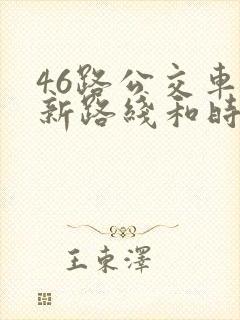 46路公交車
新路綫和時
王東澤